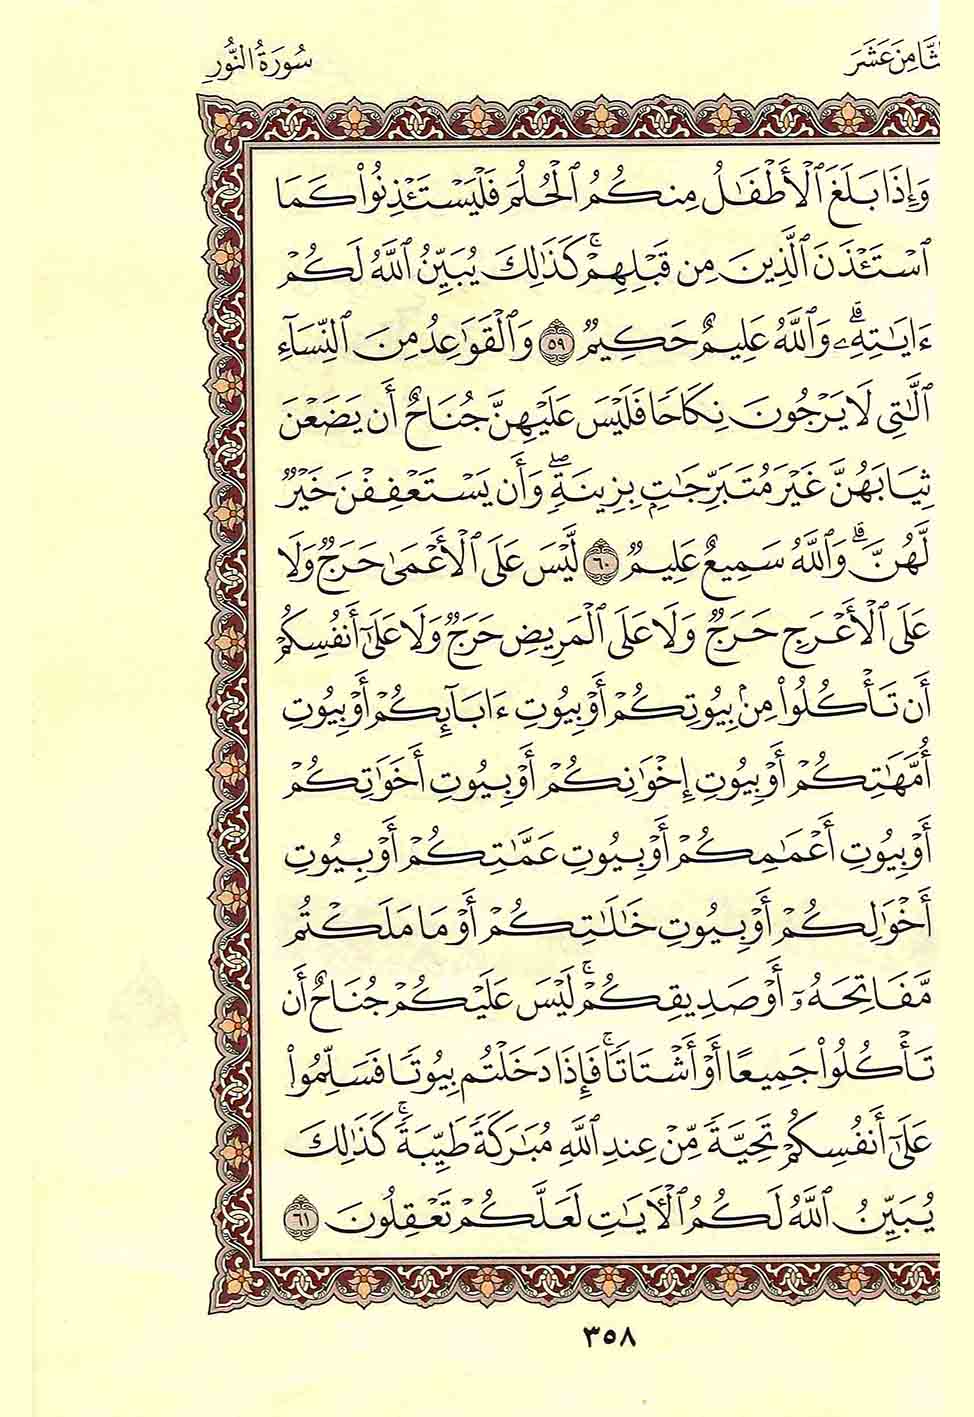 ثَّامِنَ عَشَرَ
سُورَةُ النُّورِ
وَإِذَا بَلَغَ ٱلْأَطْفَٰلُ مِنكُمُ ٱلْحُلُمَ فَلْيَسْتَـْٔذِنُوا۟ كَمَا
ٱسْتَـْٔذَنَ ٱلَّذِينَ مِن قَبْلِهِمْ ۚ كَذَٰلِكَ يُبَيِّنُ ٱللَّهُ لَكُمْ
ءَايَٰتِهِۦ ۗ وَٱللَّهُ عَلِيمٌ حَكِيمٌ ٥٩ وَٱلْقَوَٰعِدُ مِنَ ٱلنِّسَآءِ
ٱلَّٰتِى لَا يَرْجُونَ نِكَاحًا فَلَيْسَ عَلَيْهِنَّ جُنَاحٌ أَن يَضَعْنَ
ثِيَابَهُنَّ غَيْرَ مُتَبَرِّجَٰتٍۭ بِزِينَةٍ ۖ وَأَن يَسْتَعْفِفْنَ خَيْرٌ
لَّهُنَّ ۗ وَٱللَّهُ سَمِيعٌ عَلِيمٌ ٦٠ لَّيْسَ عَلَى ٱلْأَعْمَىٰ حَرَجٌ وَلَا
عَلَى ٱلْأَعْرَجِ حَرَجٌ وَلَا عَلَى ٱلْمَرِيضِ حَرَجٌ وَلَا عَلَىٰٓ أَنفُسِكُمْ
أَن تَأْكُلُوا۟ مِنۢ بُيُوتِكُمْ أَوْ بُيُوتِ ءَابَآئِكُمْ أَوْ بُيُوتِ
أُمَّهَٰتِكُمْ أَوْ بُيُوتِ إِخْوَٰنِكُمْ أَوْ بُيُوتِ أَخَوَٰتِكُمْ
أَوْ بُيُوتِ أَعْمَٰمِكُمْ أَوْ بُيُوتِ عَمَّٰتِكُمْ أَوْ بُيُوتِ
أَخْوَٰلِكُمْ أَوْ بُيُوتِ خَٰلَٰتِكُمْ أَوْ مَا مَلَكْتُم
مَّفَاتِحَهُۥٓ أَوْ صَدِيقِكُمْ ۚ لَيْسَ عَلَيْكُمْ جُنَاحٌ أَن
تَأْكُلُوا۟ جَمِيعًا أَوْ أَشْتَاتًا ۚ فَإِذَا دَخَلْتُم بُيُوتًا فَسَلِّمُوا۟
عَلَىٰٓ أَنفُسِكُمْ تَحِيَّةً مِّنْ عِندِ ٱللَّهِ مُبَٰرَكَةً طَيِّبَةً ۚ كَذَٰلِكَ
يُبَيِّنُ ٱللَّهُ لَكُمُ ٱلْءَايَٰتِ لَعَلَّكُمْ تَعْقِلُونَ ٦١
٣٥٨